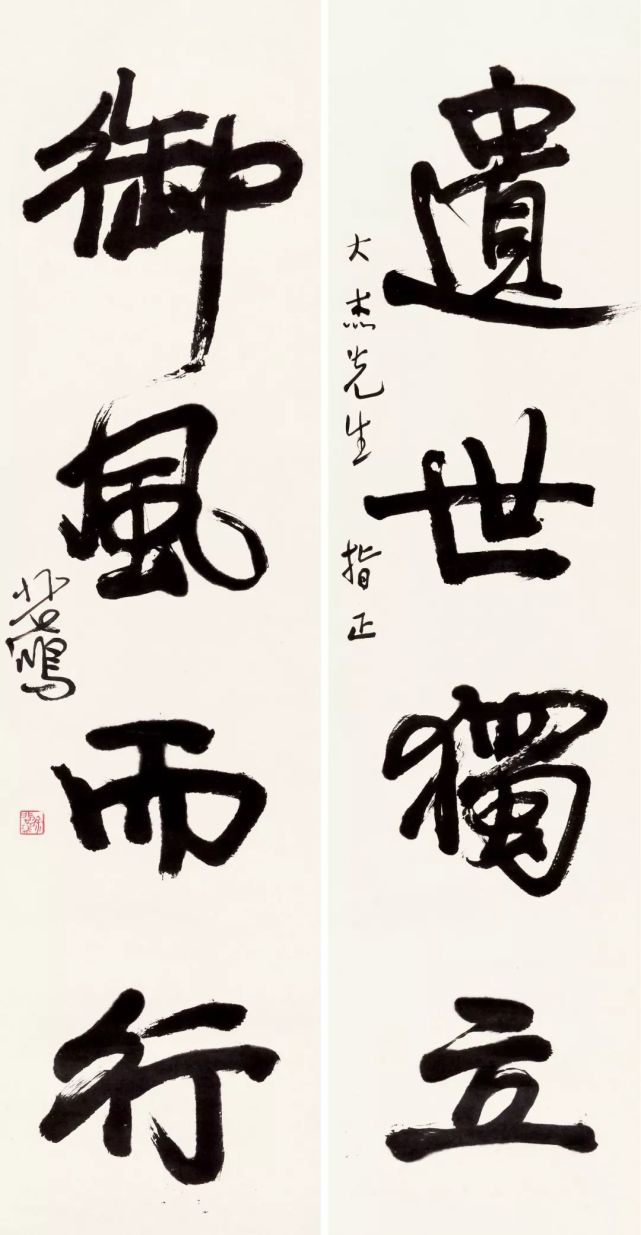 遺世獨立
大杰先生 指正
御風而行
悲鴻